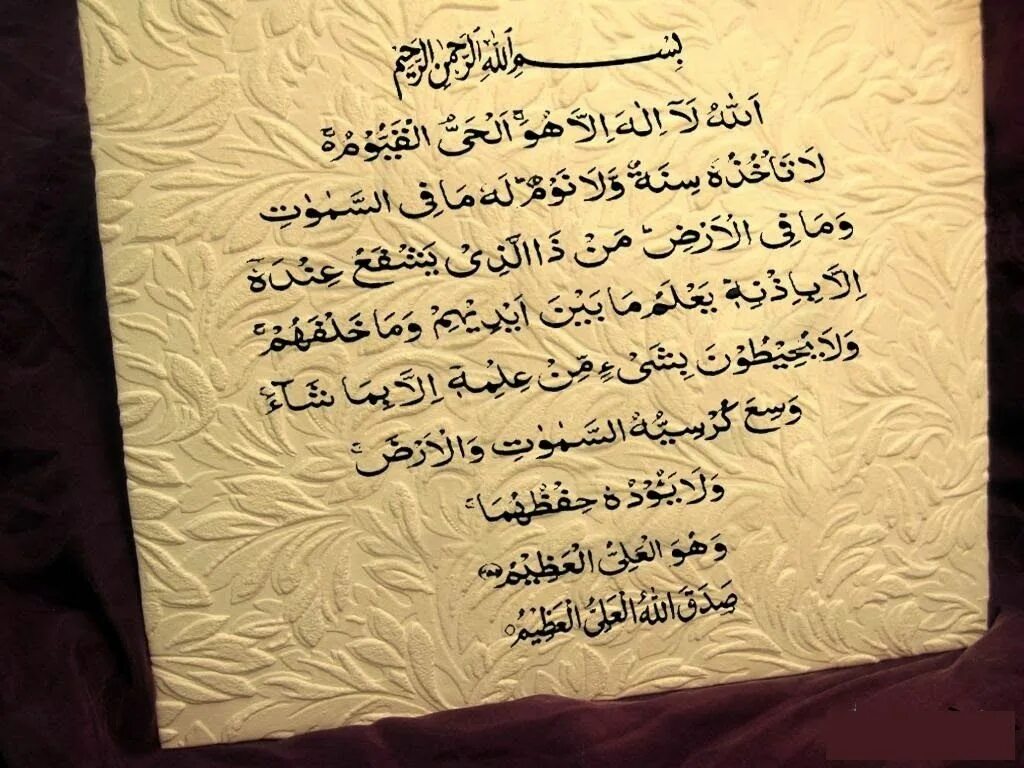 بِسْمِ اللهِ الرَّحْمٰنِ الرَّحِيْمِ
اَللهُ لَآ اِلٰهَ اِلَّا هُوَ ۚ اَلْحَیُّ الْقَيُّوْمُ ۚ
لَا تَاْخُذُهٗ سِنَةٌ وَّلَا نَوْمٌ ؕ لَهٗ مَا فِی السَّمٰوٰتِ
وَمَا فِی الْاَرْضِ ؕ مَنْ ذَا الَّذِیْ يَشْفَعُ عِنْدَهٗۤ
اِلَّا بِاِذْنِهٖ ؕ يَعْلَمُ مَا بَيْنَ اَيْدِيْهِمْ وَمَا خَلْفَهُمْ ۚ
وَلَا يُحِيْطُوْنَ بِشَیْءٍ مِّنْ عِلْمِهٖۤ اِلَّا بِمَا شَآءَ ۚ
وَسِعَ كُرْسِيُّهُ السَّمٰوٰتِ وَالْاَرْضَ ۚ
وَلَا يَـُٔوْدُهٗ حِفْظُهُمَا ۚ
وَهُوَ الْعَلِیُّ الْعَظِيْمُ ﴿۲۵۵﴾
صَدَقَ اللهُ الْعَلِیُّ الْعَظِيْمُ ○